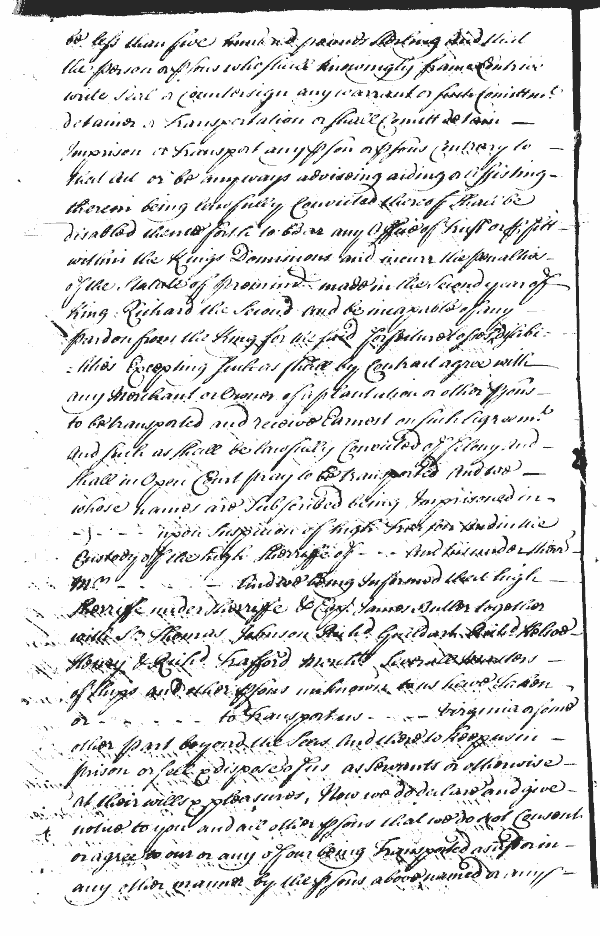 be less than five hundred pounds sterling And that
the person or psons who shall knowingly frame Contrive
write Seal or Countersign any warrant or such Comittmt
detainer or Transportation or shall Comitt detain —
Imprison or Transport any pson or psons Contrary to —
that Act or be any ways adviseing aiding or assisting —
therein being lawfully Convicted thereof Shall be
disabled thence forth to bear any Office of trust or proffitt —
within the Kings Dominions and incurr the penalties
of the Statute of premunire made in the Second year of
King Richard the Second And be incapable of any
pardon from the King for the said forfeitures or disabi-
-lities Excepting Such as shall by Contract agree with
any Merchant or Owner of a plantation or other psons
to be transported and receive Earnest on such Agreemt
And such as shall be lawfully Convicted of felony And —
Shall in Open Court pray to be transported And we —
whose names are Subscribed being Imprisoned in —
upon Suspicion of high Treason and in the
Custody of the high Sherriffe of - - - And his under Sherr
Mr - - - - - - And we being Informed that high —
Sherriffe under Sherriffe & Esqr James Butler together
with Sr Thomas Johnson Richd Guildart
Henry & Richd Trafford Severall
of Ships and other psons unknown to us have taken
or - - - - - - to Transport us - - - - Virginia or some
other part beyond the Seas And there to keep us in —
prison or sell & dispose of us as Servants or otherwise
at their wills & pleasures, Now we do declare and give —
notice to you and all other psons that we do not Consent
or agree to our or any of our being Transported as aforesd or in —
any other manner by the psons above named or any